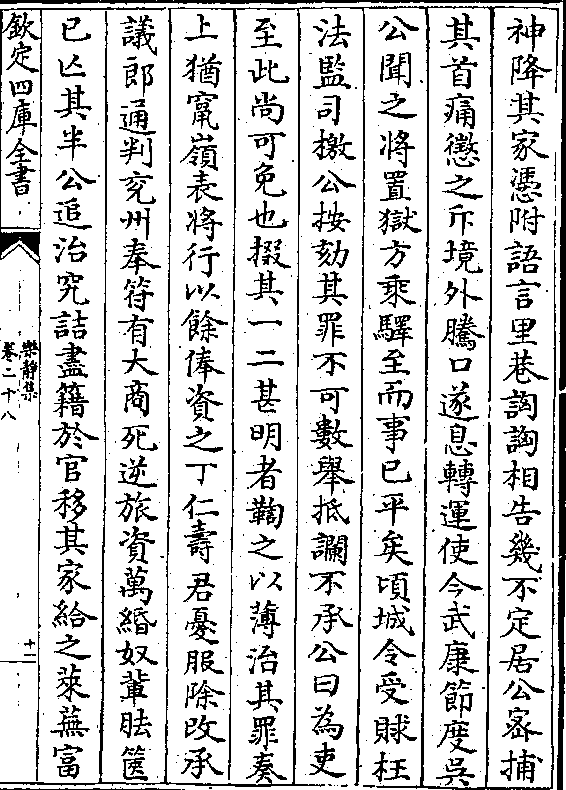 神降其家憑附語言里巷訩訩相告幾不定居公宻捕
其首痛懲之斥境外騰口遂息轉運使今武康節度吳
公聞之將置獄方乘驛至而事已平矣頃城令受賕枉
法監司檄公按劾其罪不可數舉抵讕不承公曰為吏
至此尚可免也掇其一二甚明者鞫之以薄治其罪奏
上猶竄嶺表將行以餘俸資之丁仁壽君憂服除改承
議郎通判兖州奉符有大商死逆旅資萬緡奴輩胠篋
已亡其半公追治究詰盡籍於官移其家給之萊蕪富
欽定四庫全書
樂靜集
卷二十八
十一